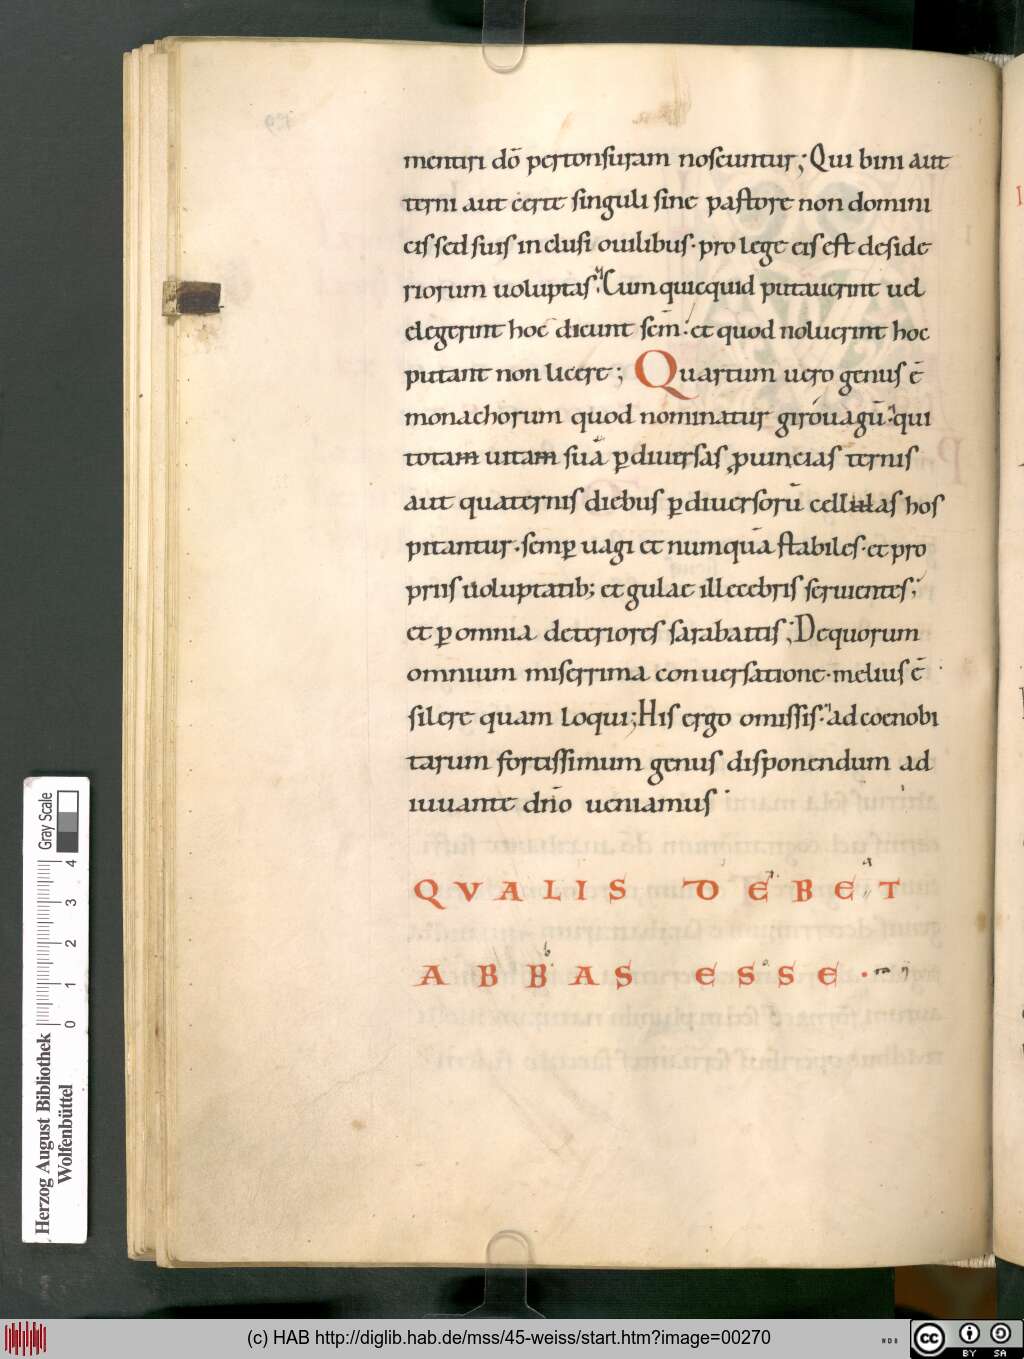 mentiri dō pertonsuram noscuntur; Qui bini aut
terni aut certe singuli sine pastore non domini
cis sed suis inclusi ouilibus· pro lege eis est deside
riorum uoluptas; Cum quicquid putauerint uel
elegerint hoc dicunt scm̄· et quod noluerint hoc
putant non licere; Quartum uero genus ē
monachorum quod nominatur girouagū· qui
totam uitam suā ꝑ diuersas ꝓuincias ternis
aut quaternis diebus ꝑ diuersorū cellulas hos
pitantur· semꝑ uagi et numquā stabiles· et pro
priis uoluptatib; et gulae illecebris seruientes;
et ꝑ omnia deteriores sarabaitis; Dequorum
omnium miserrima conuersatione· melius ē
silere quam loqui; His ergo omissis· ad coenobi
tarum fortissimum genus disponendum ad
iuuante dn̄o ueniamus
QVALIS DEBET
ABBAS ESSE·
Herzog August Bibliothek
Wolfenbüttel
0 1 2 3 4
Gray Scale
(c) HAB http://diglib.hab.de/mss/45-weiss/start.htm?image=00270
cc BY SA